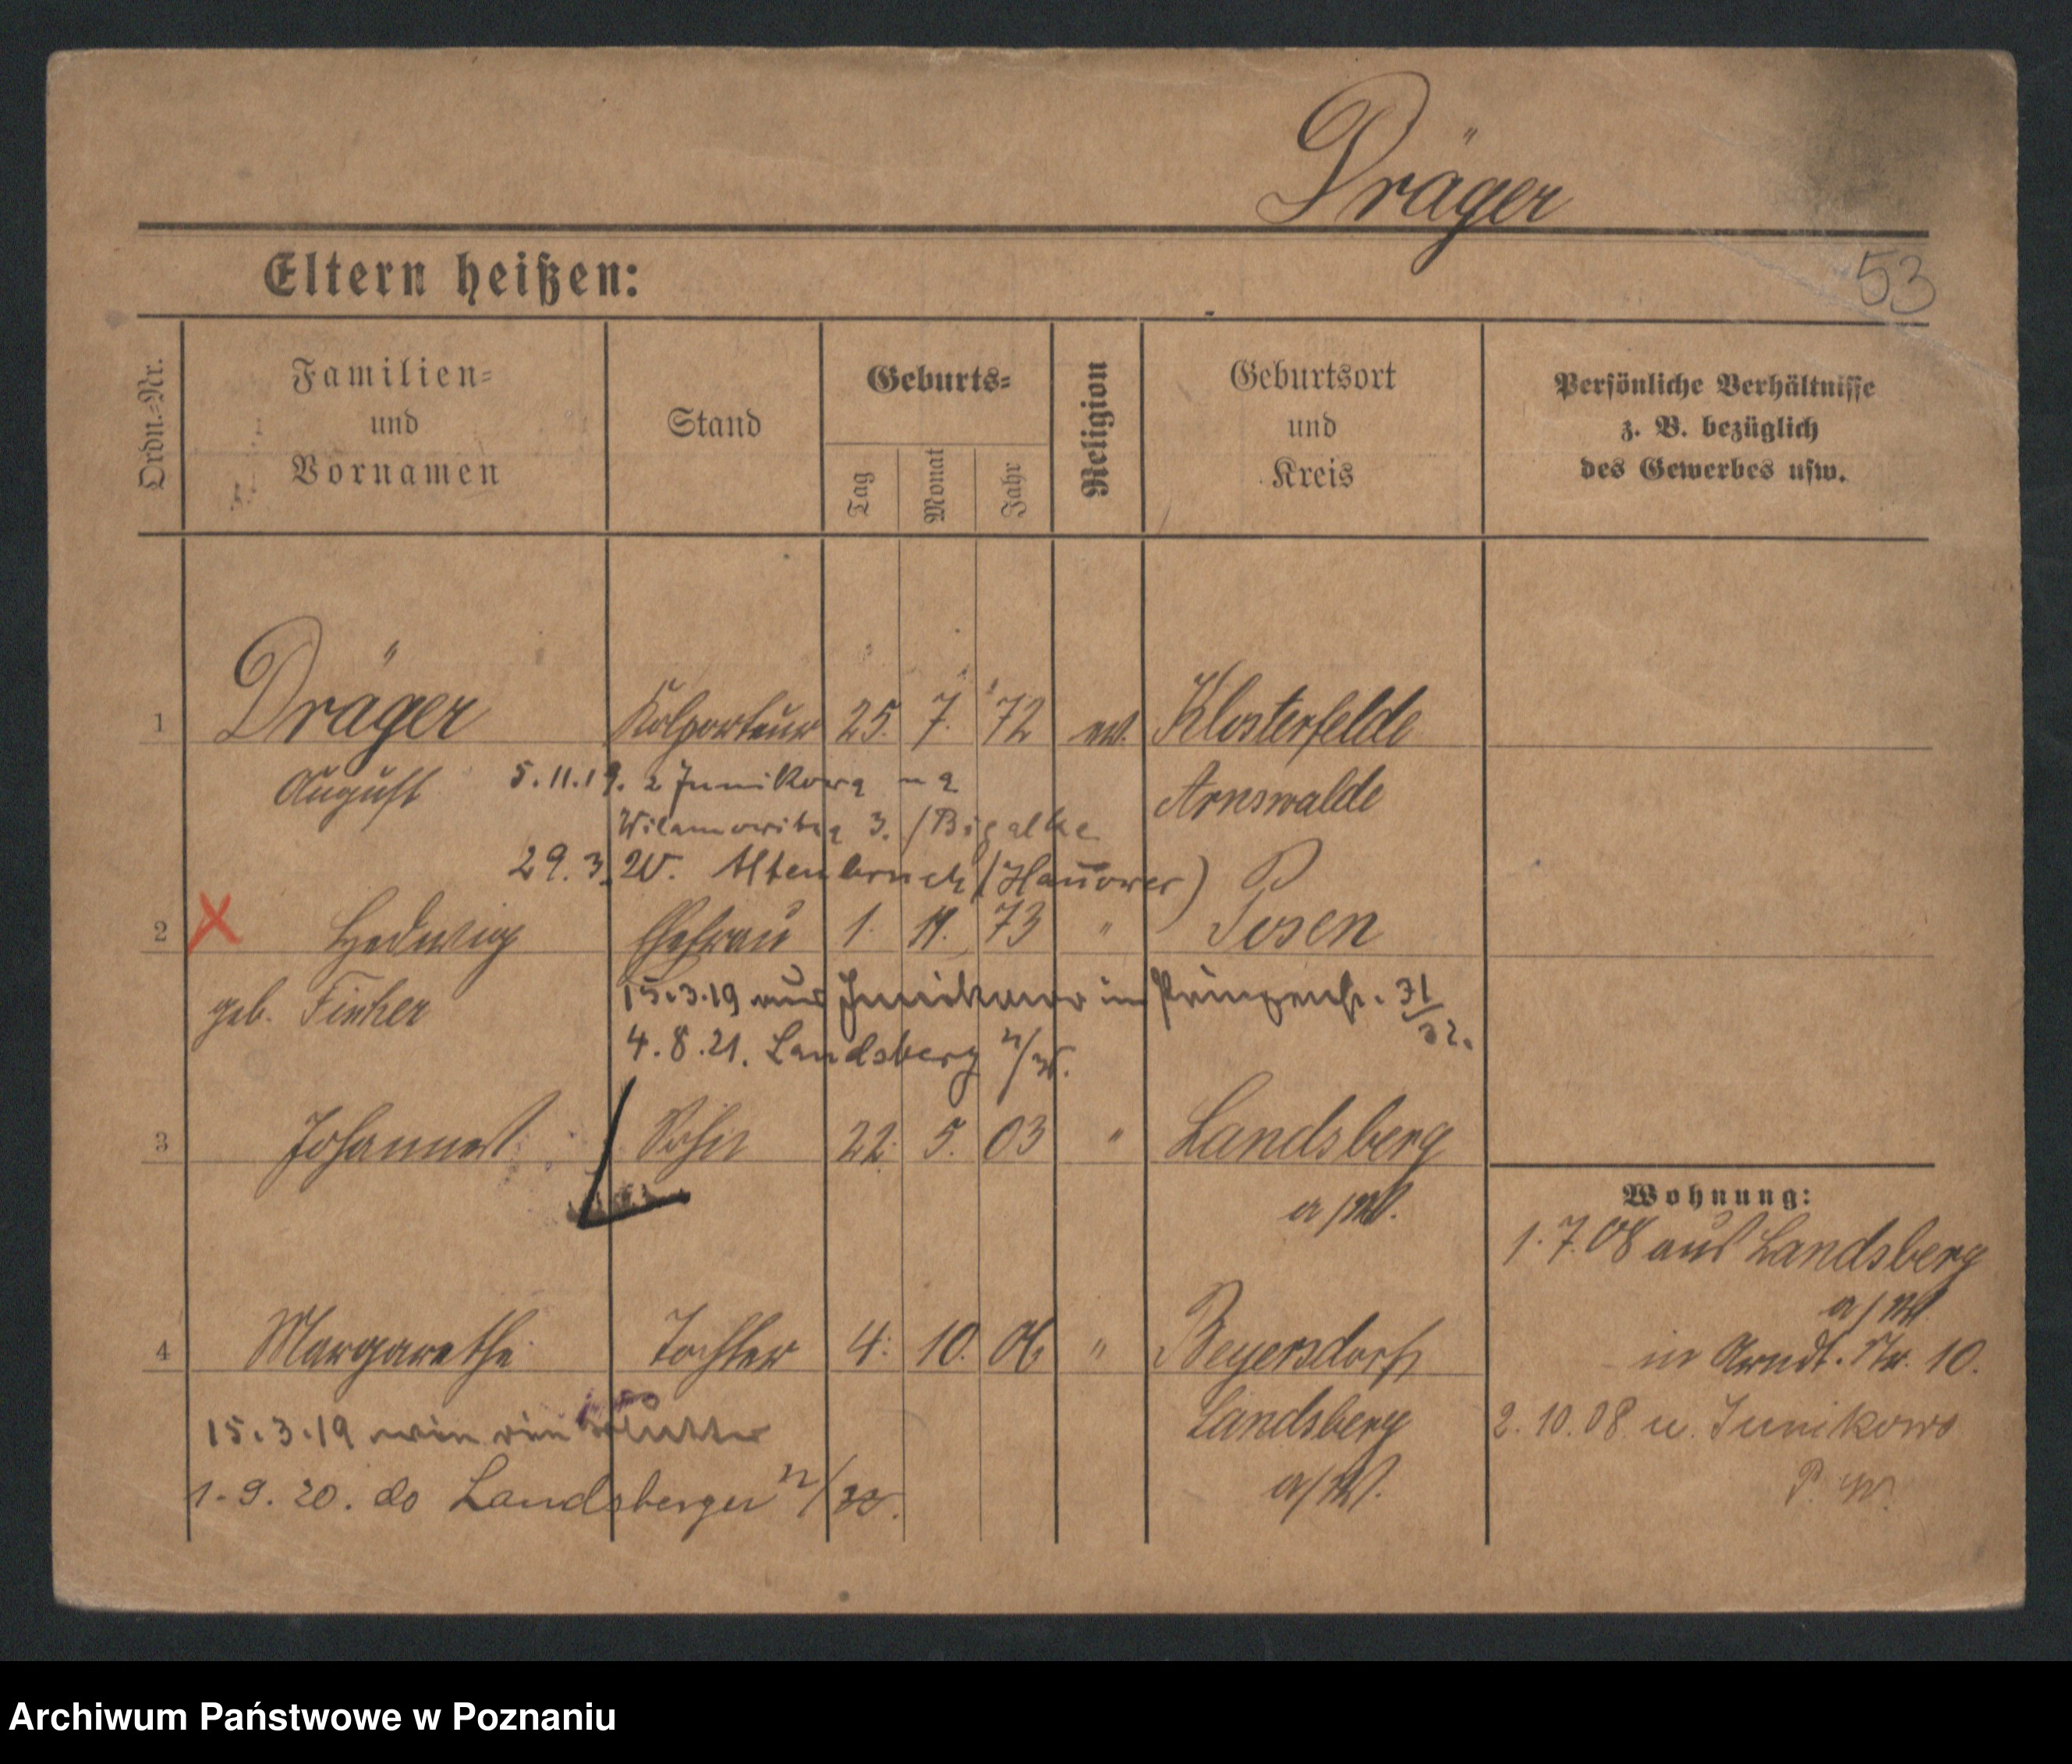 Dräger
53
Eltern heißen:
Ordn.-Nr.
Familien- und Vornamen
Stand
Geburts-
Tag
Monat
Jahr
Religion
Geburtsort und Kreis
Persönliche Verhältnisse
z. B. bezüglich
des Gewerbes usw.
1 Dräger Kolporteur 25. 7. 72 ev. Klosterfelde
August 5.11.19. z Junikowa na
Arnswalde
3. /Bigalke
29.3.20. Altenbruch (Hannover)
2 Hedwig Ehefrau 1. 11. 73 " Posen
geb. 15.3.19 aus Junikowo in Prinzenstr. 31/32.
4.8.21. Landsberg n/W.
3 Johannes Sohn 22. 5. 03 " Landsberg
a/W.
4 Margarethe Tochter 4. 10. 06 " Beyersdorf
15.3.19 wie die Mutter
Landsberg
1.9.20. do Landsberger n/
a/W.
Wohnung:
1.7.08 aus Landsberg
a/W
in Arndt. Str. 10.
2.10.08 n. Junikowo
P. W.
Archiwum Państwowe w Poznaniu